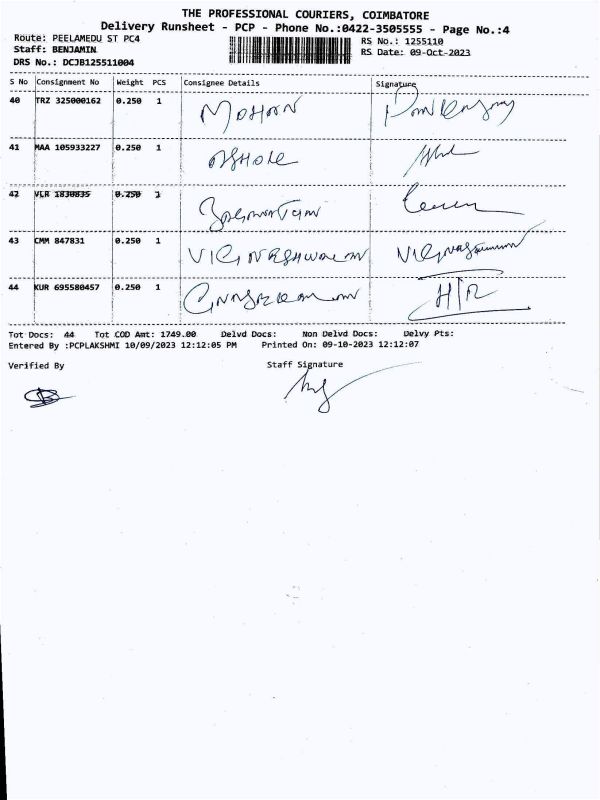 THE PROFESSIONAL COURIERS, COIMBATORE
Delivery Runsheet - PCP - Phone No.:0422-3505555 - Page No.:4
Route: PEELAMEDU ST PC4
RS No.: 1255110
Staff: BENJAMIN
RS Date: 09-Oct-2023
DRS No.: DCJB125511004
S No Consignment No Weight PCS Consignee Details Signature
40 TRZ 325000162 0.250 1 MOHAN
41 MAA 105933227 0.250 1 ASHOK
42 VLR 1830835 0.250 1
43 CMM 847831 0.250 1 VIGNESHWARAN
44 KUR 695580457 0.250 1 H/R
Tot Docs: 44 Tot COD Amt: 1749.00 Delvd Docs: Non Delvd Docs: Delvy Pts:
Entered By :PCPLAKSHMI 10/09/2023 12:12:05 PM Printed On: 09-10-2023 12:12:07
Verified By Staff Signature